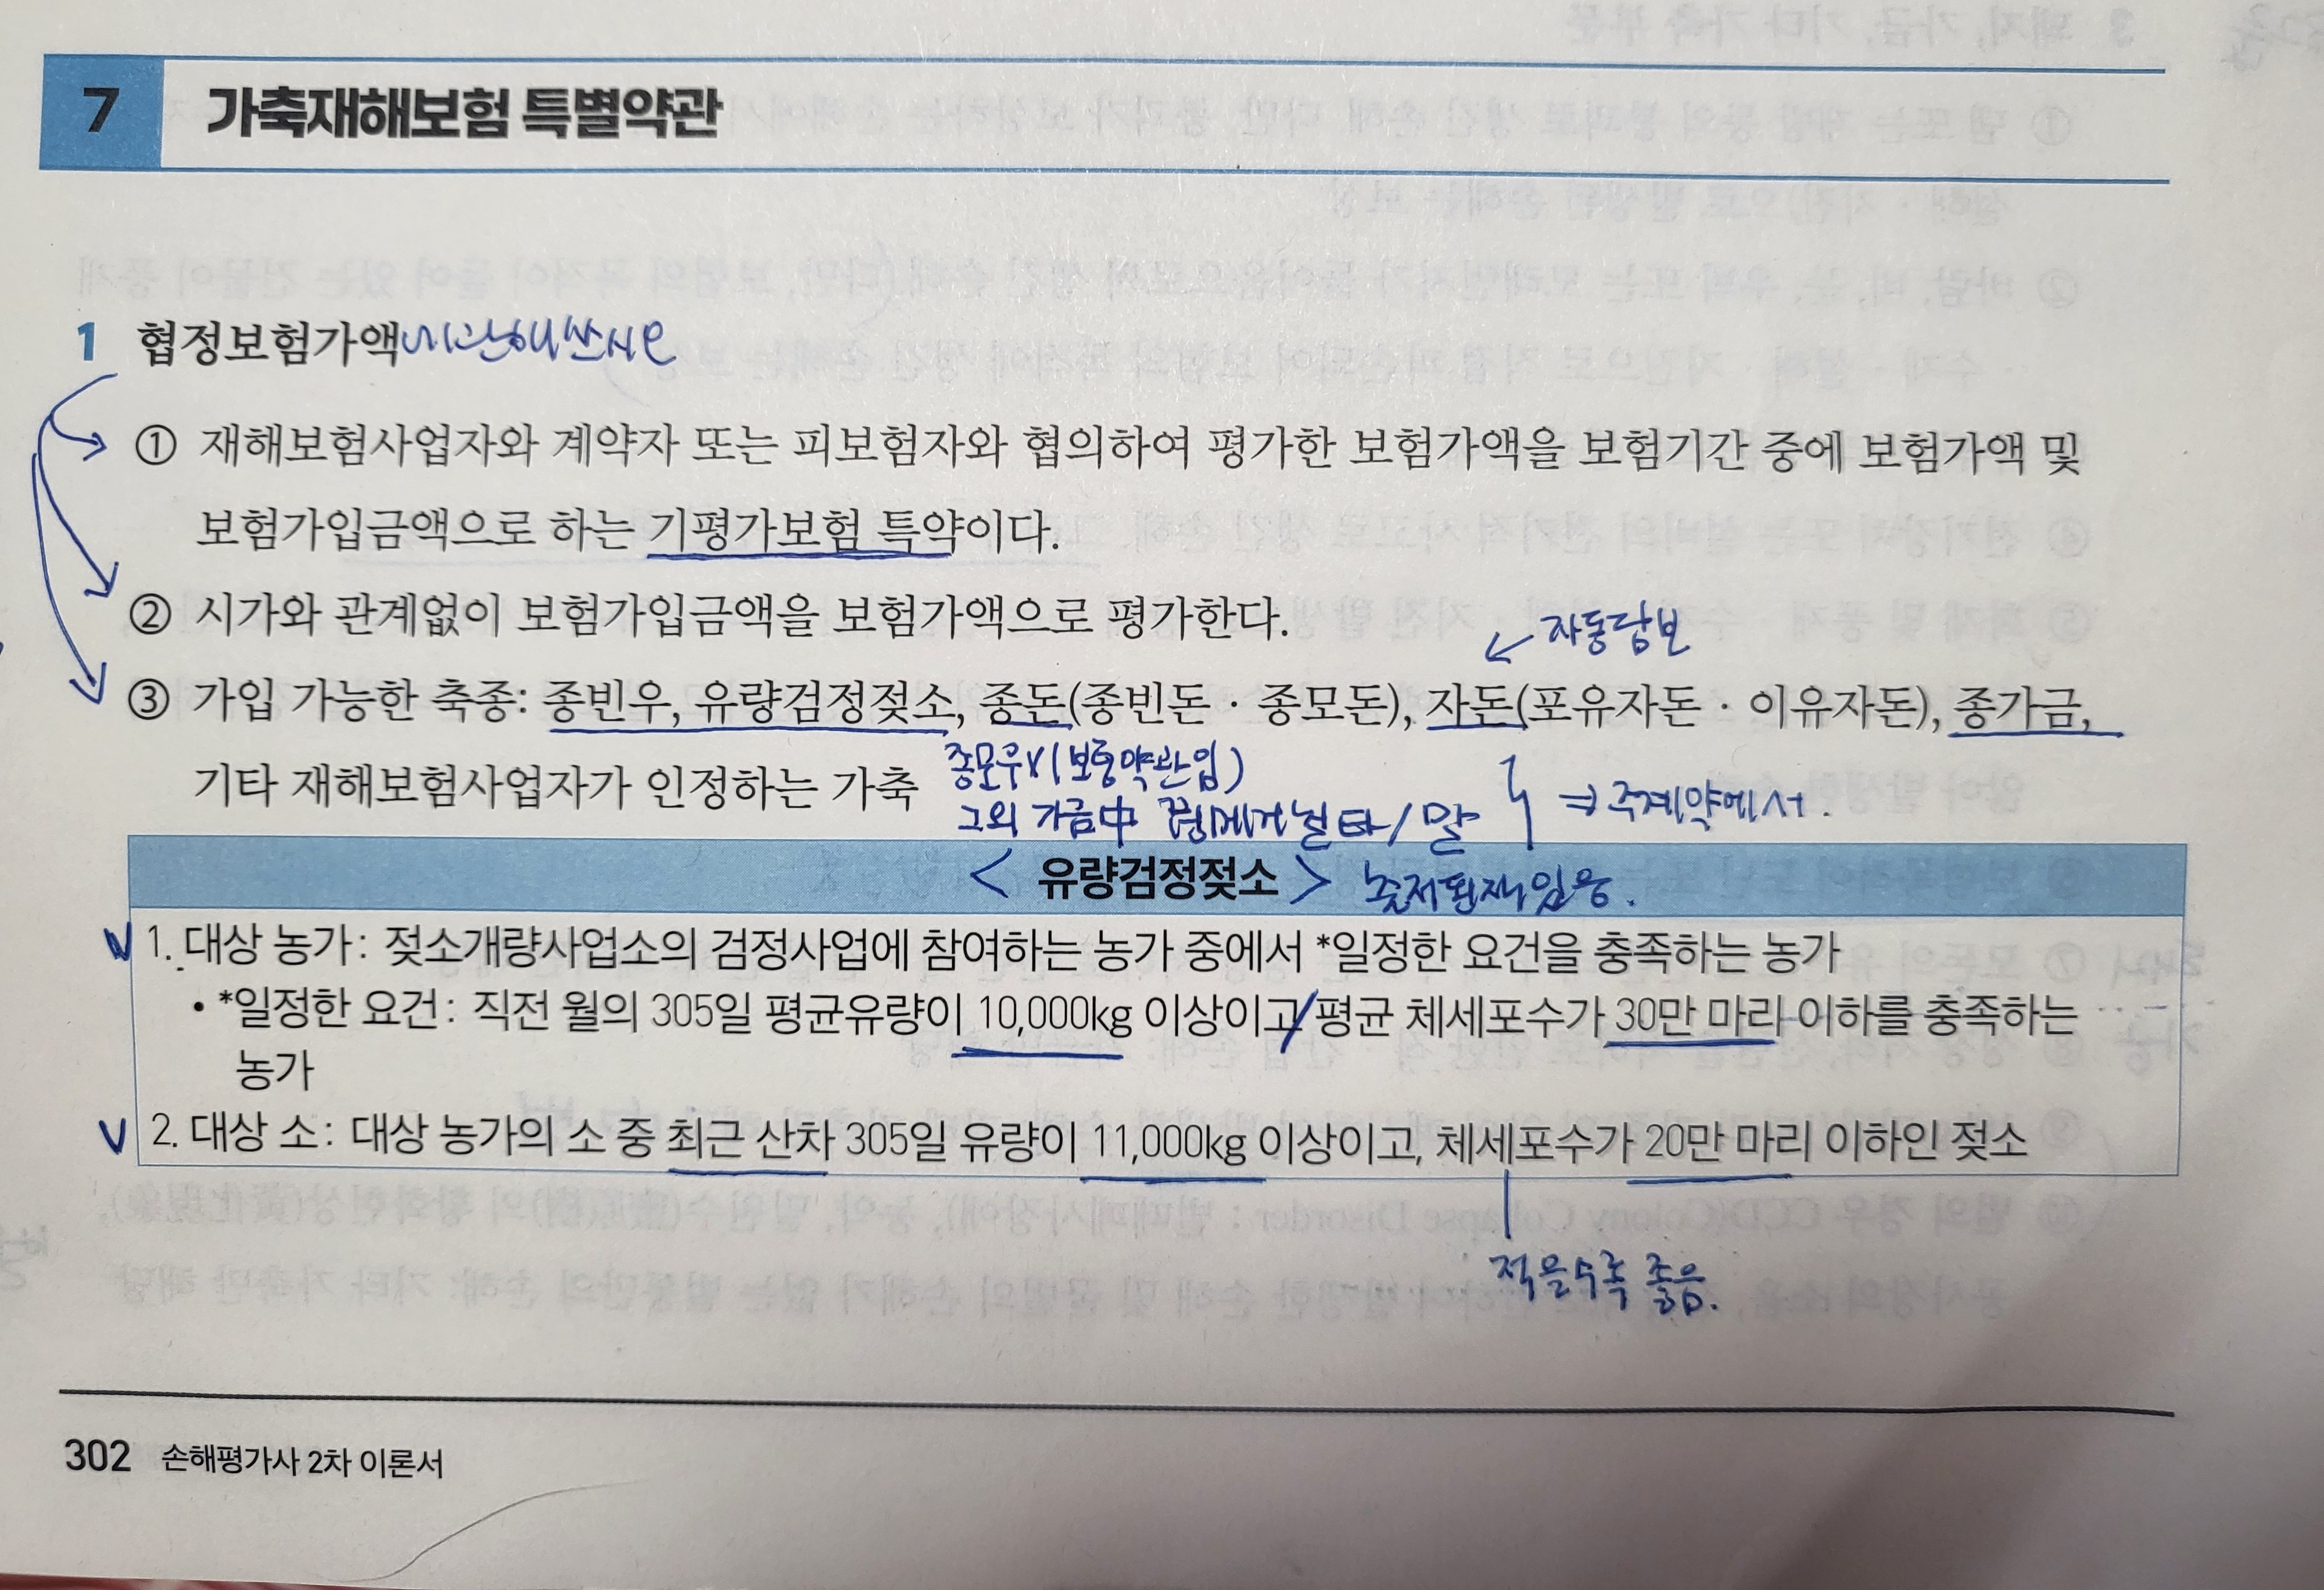 7 가축재해보험 특별약관
1 협정보험가액
① 재해보험사업자와 계약자 또는 피보험자와 협의하여 평가한 보험가액을 보험기간 중에 보험가액 및
보험가입금액으로 하는 기평가보험 특약이다.
② 시가와 관계없이 보험가입금액을 보험가액으로 평가한다.
자동담보
③ 가입 가능한 축종: 종빈우, 유량검정젖소, 종돈(종빈돈 · 종모돈), 자돈(포유자돈 · 이유자돈), 종가금,
기타 재해보험사업자가 인정하는 가축
종모우 (보통약관임)
⇒ 주계약에서.
그외 가금中 / 말
<유량검정젖소>
1. 대상 농가: 젖소개량사업소의 검정사업에 참여하는 농가 중에서 *일정한 요건을 충족하는 농가
• *일정한 요건: 직전 월의 305일 평균유량이 10,000kg 이상이고/평균 체세포수가 30만 마리 이하를 충족하는
농가
2. 대상 소: 대상 농가의 소 중 최근 산차 305일 유량이 11,000kg 이상이고, 체세포수가 20만 마리 이하인 젖소
적을수록 좋음.
302 손해평가사 2차 이론서